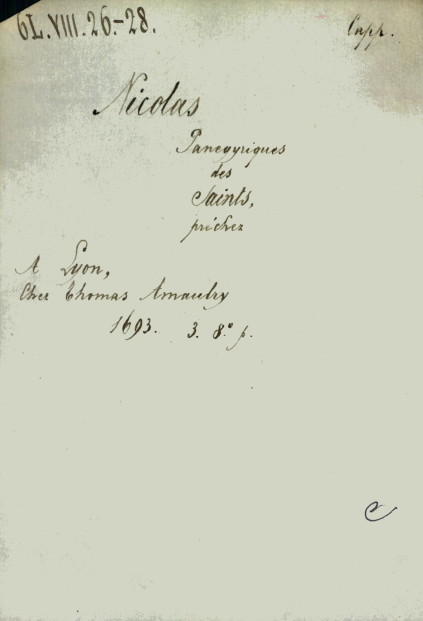 6L.VIII.26.-28.
Capp.
Nicolas
Panegyriques
des
Saints,
préchez
A Lyon,
Chez Thomas Amaulry
1693. 3. 8.° p.